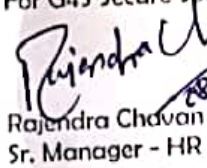 For G4S Secure S
Rajendra Ch
28
Rajendra Chavan
Sr. Manager - HR